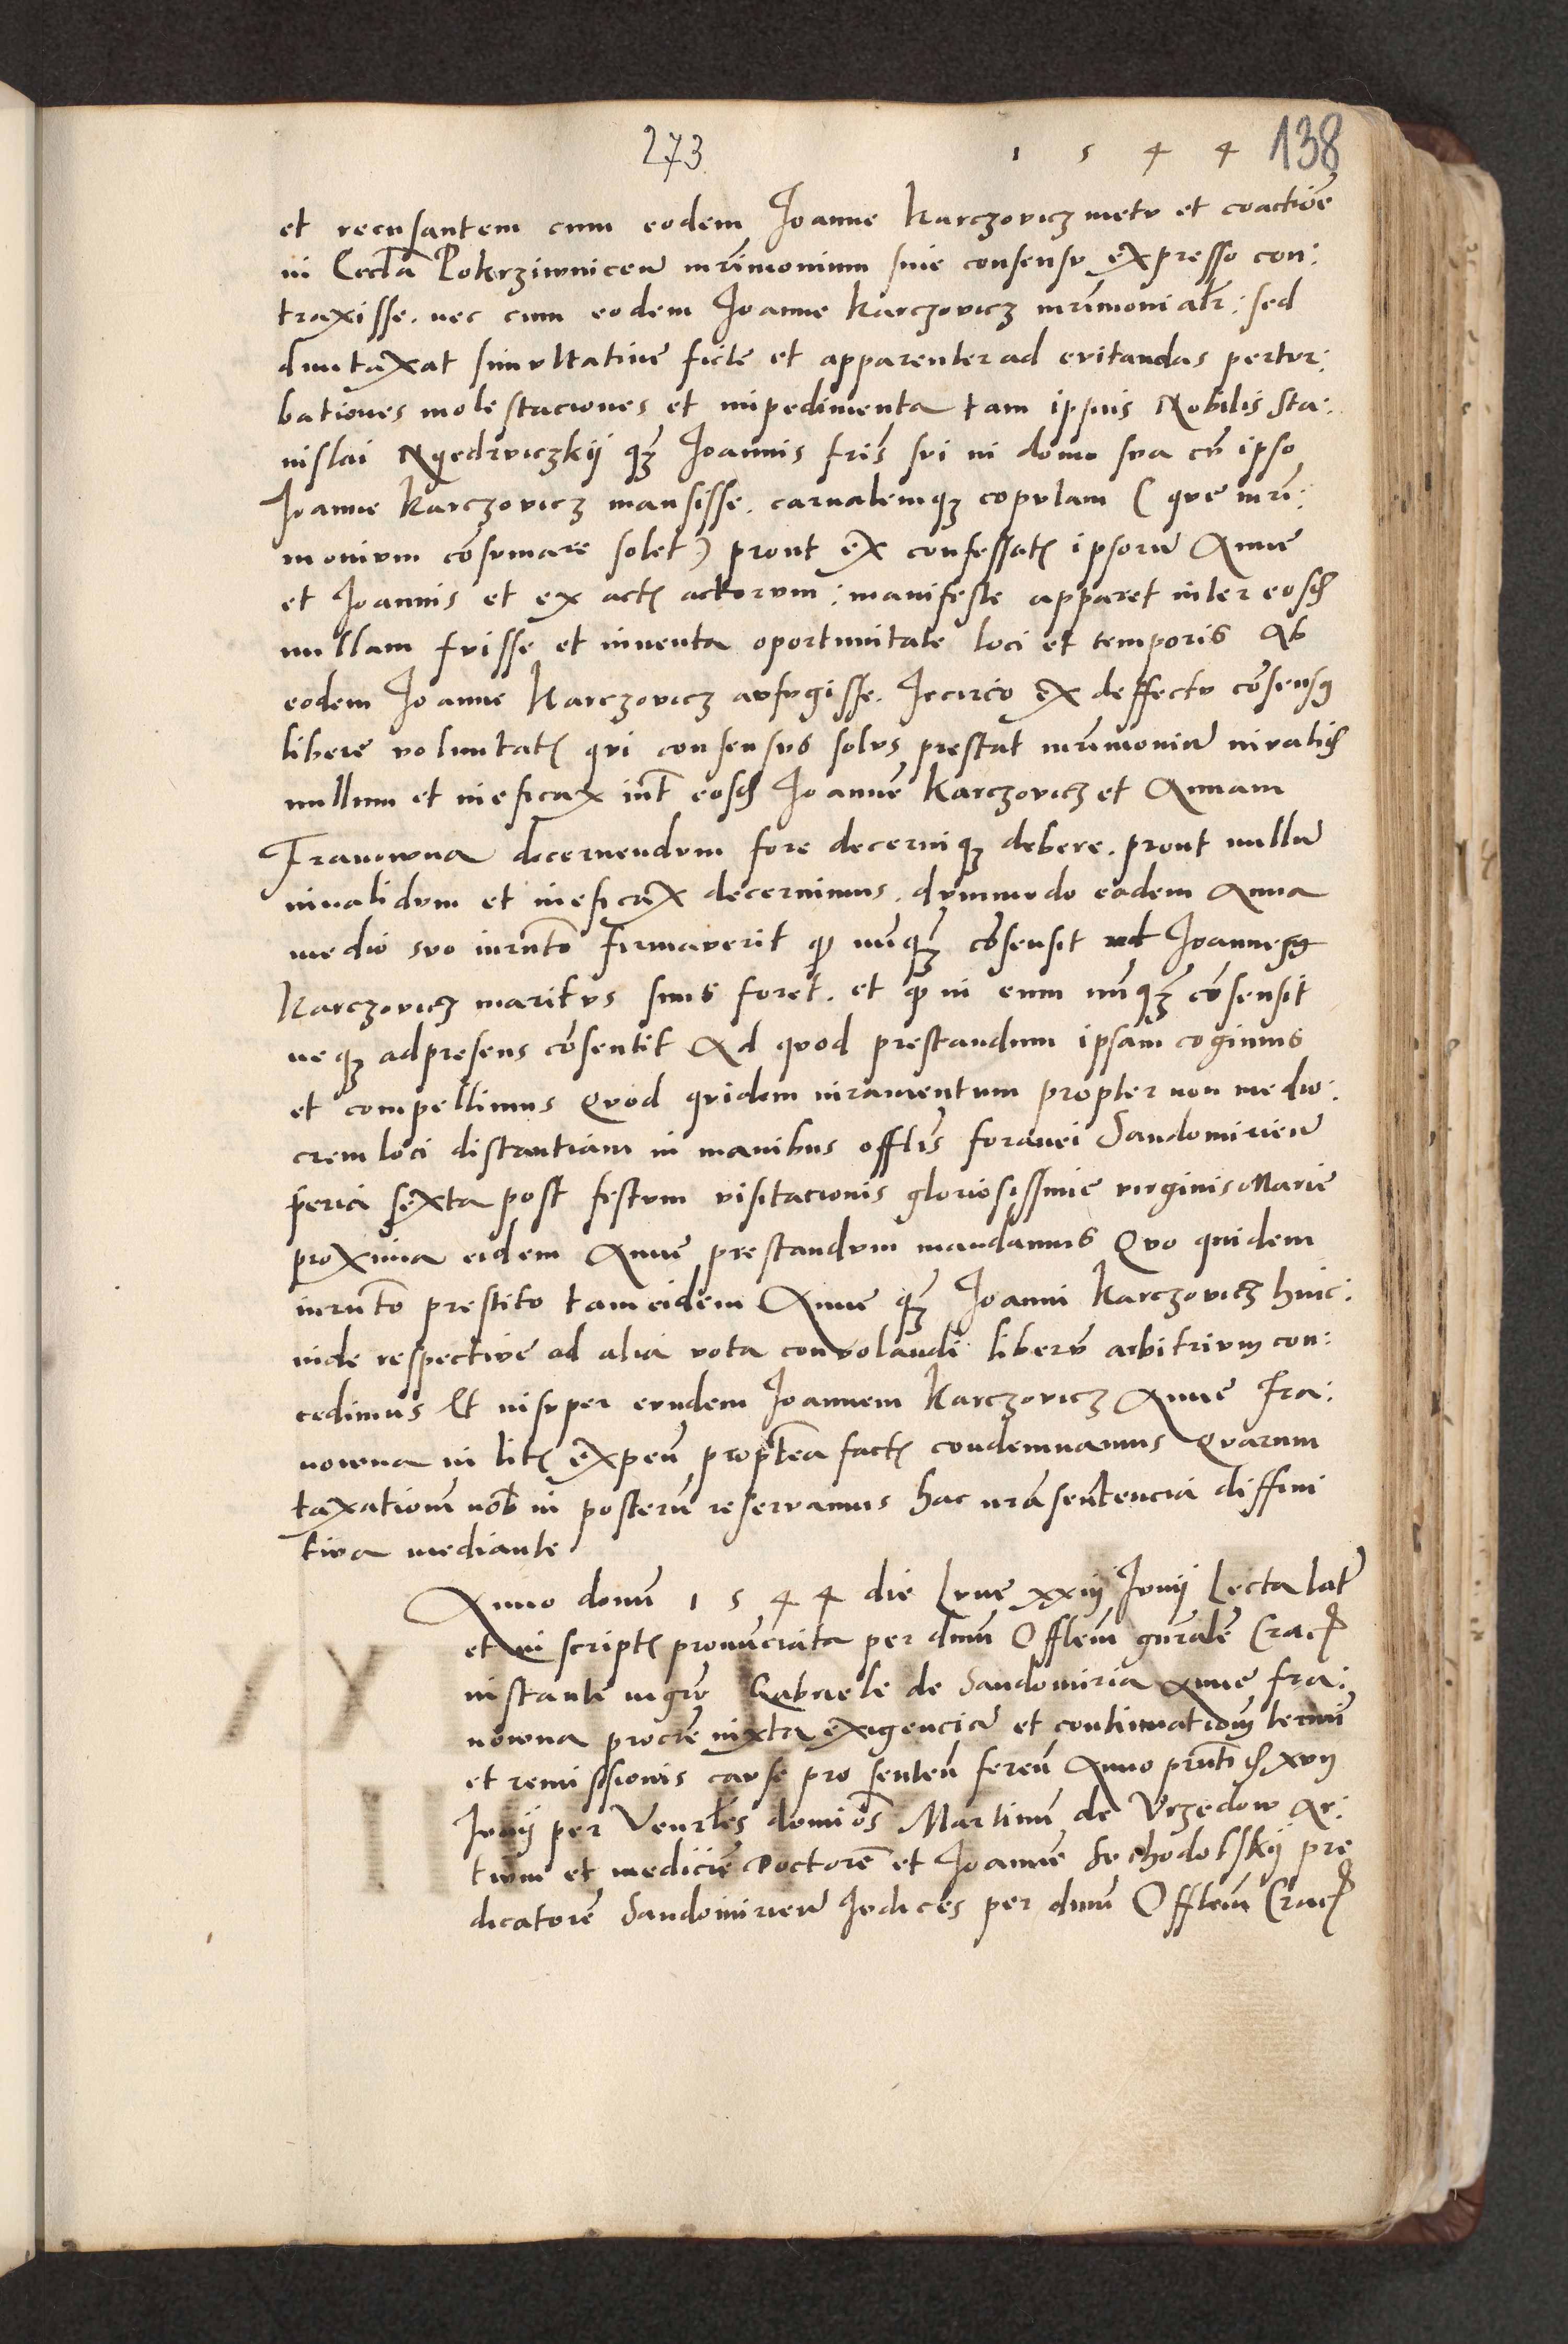 273 1 5 4 4 138
et recusantem cum eodem Joanne Karczovicz metu et coactiōe
in Eccl̄a Pokrziwnicen̄ mr̄imonium sine consensu expresso con:
traxisse. nec cum eodem Joanne Karczovicz mr̄imonialr̄: sed
duntaxat simultative ficte et apparenter ad evitandas pertur:
bationes molestaciones et impedimenta tam ipsius Nobilis Sta:
nislai qz̄ Joannis fr̄is sui in domo sua cū ipso
Joanne Karczovicz mansisse. carnalemqz copulam (que mr̄i:
monium cōsumare solet) prout ex confessatꝭ ipsorū Anne
et Joannis et ex actꝭ actorum: manifeste apparet inter eosdꝫ
nullam fuisse et inventa oportunitate loci et temporis Ab
eodem Joanne Karczovicz aufugisse. Jccirco ex deffectu cōsensꝰ
libere voluntatꝭ qui consensus solus prestat mr̄imoniū invalidꝫ
nullum et ineficax int̄ eosdꝫ Joannē Karczovicz et Annam
Franowna decernendum fore decerniqz debere. prout nullū
invalidum et ineficax decernimus. dummodo eadem Anna
medio suo iurn̄to firmaverit qꝫ nūqz̄ cōsensit ut Joannes
Karczovicz maritus suus foret. et qꝫ in eum nūqz̄ cōsensit
neqz adpresens cōsentit Ad quod prestandum ipsam cogimus
et compellimus Quod quidem iuramentum propter non medio:
crem loci distantiam in manibus offl̄is foranei Sandomirien̄
feria sexta post festum visitacionis gloriosissime virginis Marie
proxima eidem Anne prestandum mandamus Quo quidem
iurn̄to prestito tam eidem Anne qz̄ Joanni Karczovicz hinc:
inde respective ad alia vota convolandi liberū arbitrium con:
cedimus Et insuper eundem Joannem Karczovicz Anne Fra:
nowna in litꝭ expen̄ propt̄ea factꝭ condemnamus Quarum
taxationem nob̄ in posterū reservamus hac nr̄a sententencia diffini
tiva mediante
Anno domī 1 5 4 4 die Lune xxiij Junij Lecta lat̄
et in scriptꝭ pronunciata per dnū Offlem gn̄ralē Cracꝭ
instante mgrō Gabriele de Sandomiria Anne fra:
nowna procr̄e iuxta exigenciā et continuationē termī
et remissionis cause pro senten̄ feren̄ Anno prn̄ti xvij
Junij per Venr̄les dominos Martinū de Vrzedow Ar:
tium et medicīe Doctorē et Joannē pre
dicatorē Sandomirien̄ Judices per dnū Offlem Cracꝭ